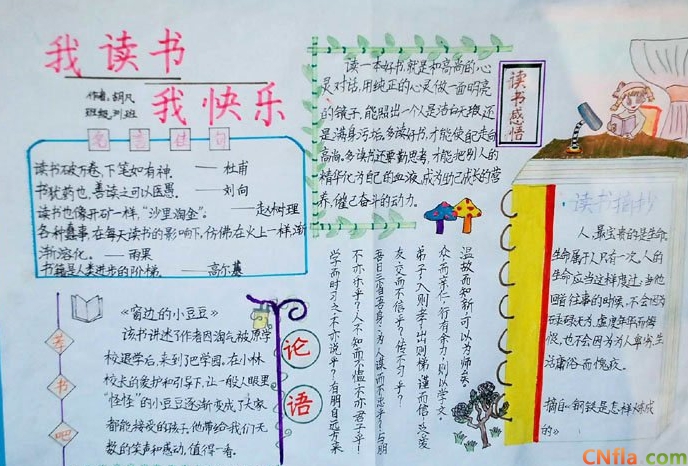 我读书
我快乐
作者:胡凡
班级:
名言佳句
读书破万卷,下笔如有神. ——杜甫
书犹药也,善读之可以医愚. ——刘向
读书也像开矿一样,“沙里淘金”. ——赵树理
各种蠢事,在每天读书的影响下,仿佛在火上一样渐
渐溶化。——雨果
书籍是人类进步的阶梯. ——高尔基
读一本好书,就是和高尚的心
灵对话,用纯正的心灵做一面明亮
的镜子,能照出一个人是洁白无瑕还
是满身污垢,多读好书,才能使自己走向
高尚,多读书还要勤思考,才能把别人的
精华化为自己的血液,成为自己成长的营
养,催己奋斗的动力.
读书感悟
读书摘抄
人最宝贵的是生命.
生命属于人只有一次,人的
生命应当这样度过:当他
回首往事的时候,不会因为
碌碌无为,虚度年华而悔
恨,也不会因为为人卑劣,生
活庸俗而愧疚。
摘自《钢铁是怎样炼成
的》
荐书吧
《窗边的小豆豆》
该书讲述了作者因淘气被原学
校退学后,来到巴学园.在小林
校长的爱护和引导下,让一般人眼里
“怪怪”的小豆豆逐渐变成了大家
都能接受的孩子,他带给我们无
数的笑声和感动,值得一看。
论语
温故而知新,可以为师矣.
众而亲仁,行有余力,则以学文.
弟子入则孝,出则悌,谨而信,泛爱
友交而不信乎?传不习乎?
吾日三省吾身:为人谋而不忠乎?与朋
不亦乐乎?人不知而不愠,不亦君子乎?
学而时习之,不亦说乎?有朋自远方来
CNfla.com